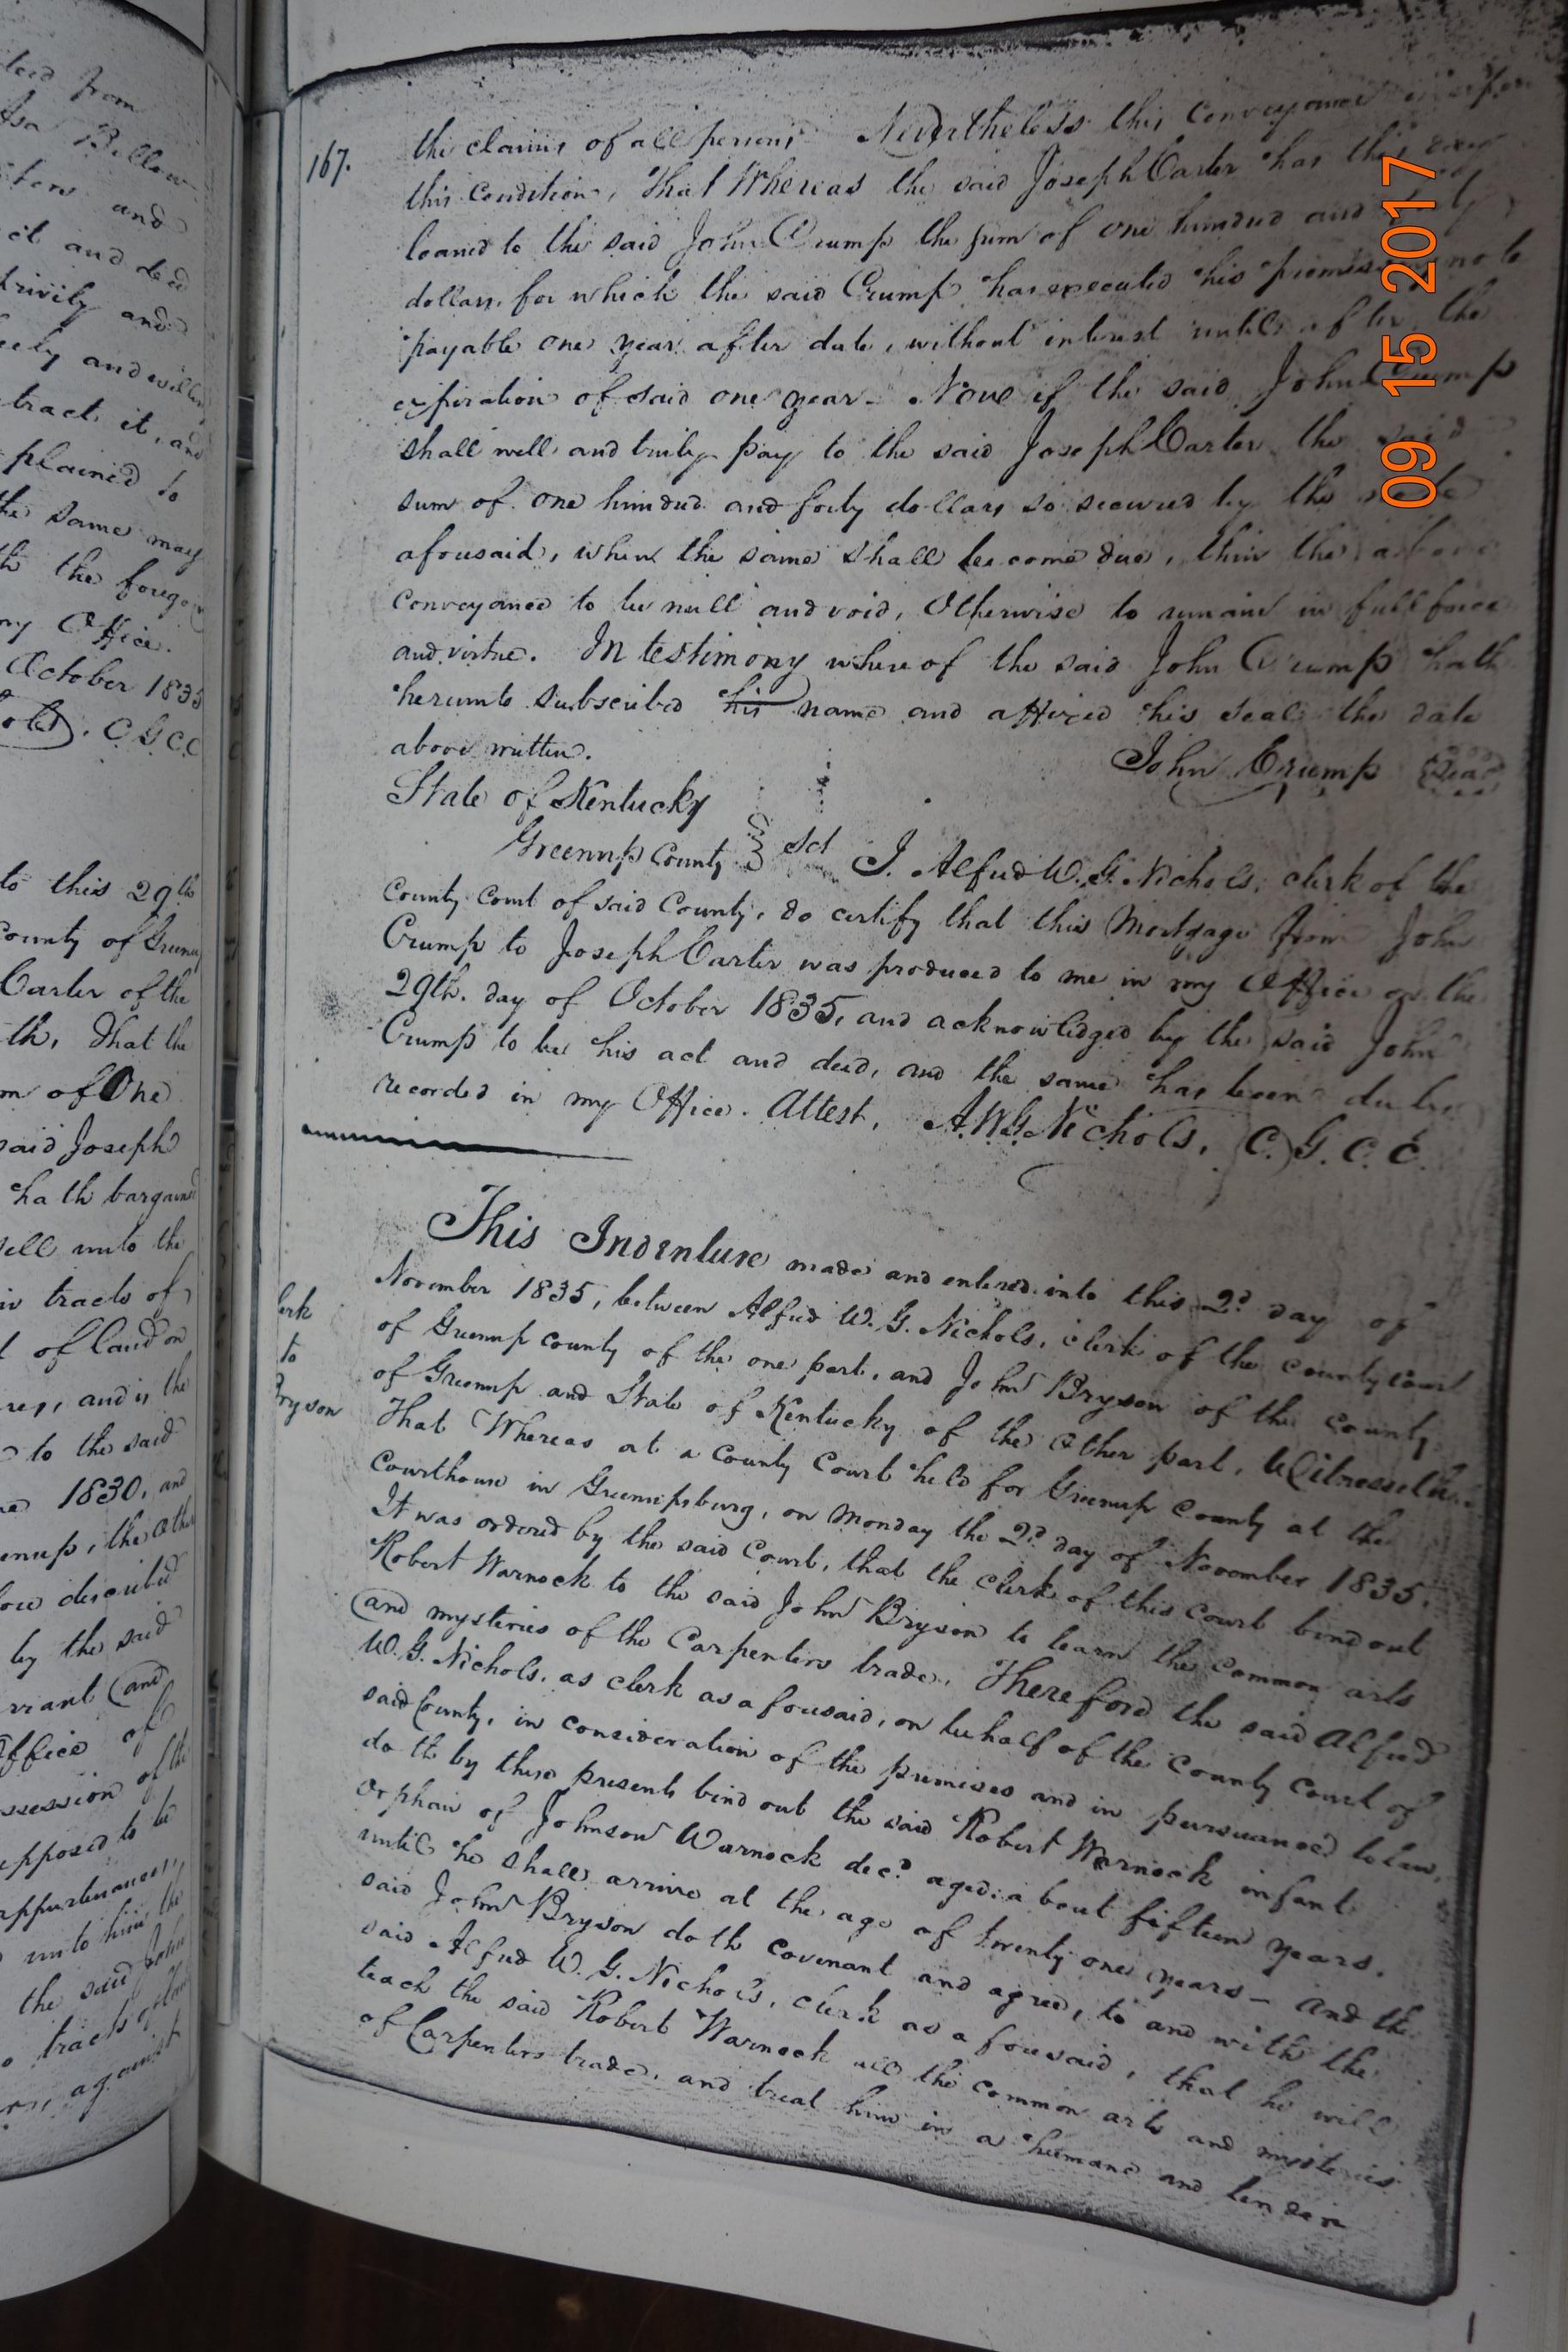 deed from
Asa Bellow
and
ct and deed
privily and
eely and willin
tract it, and
plained to
the same may
th the forego
my Office.
October 1835
C.G.C.C
to this 29th
County of Greenu
Carter of the
th, That the
m of One
said Joseph
hath bargained
sell unto the
tracts of
t of land on
res, and is the
to the said
1830, and
enup, the other
described
by the said
rriant and
Office of
ssession of the
upposed to be
appurtenances,
unto him, the
the said John
tracts of lan
against
167.
the claims of all persons Nevertheless this conveyance
this condition, That Whereas the said Joseph Carter has this
loaned to the said John Crump the sum of one hundred and
dollars, for which the said Crump has executed his promissory note
payable one year after date, without interest until after the
expiration of said one year - Now if the said John Crump
shall well and truly pay to the said Joseph Carter the said
sum of one hundred and forty dollars so secured by the note
aforesaid, when the same shall become due, then the above
conveyance to be null and void, Otherwise to remain in full force
and virtue. In testimony whereof the said John Crump hath
hereunto subscribed his name and affixed his seal the date
above written.
John Crump Seal
State of Kentucky
Greenup County Sct I, Alfred W. G. Nichols, clerk of the
County Court of said County, do certify that this Mortgage from John
Crump to Joseph Carter was produced to me in my Office on the
29th. day of October 1835, and acknowledged by the said John
Crump to be his act and deed, and the same has been duly
recorded in my Office. Attest, A.W.G. Nichols, C.G.C.C.
This Indenture made and entered into this 2d day of
November 1835, between Alfred W. G. Nichols, clerk of the county court
of Greenup county of the one part, and John Bryson of the county
of Greenup and State of Kentucky of the other part, Witnesseth.
That Whereas at a county Court held for Greenup County at the
Courthouse in Greenupsburg, on Monday the 2d day of November 1835.
It was ordered by the said Court, that the clerk of this Court bind out
Robert Warnock to the said John Bryson to learn the common arts
and mysteries of the Carpenters trade. Therefore the said Alfred
W. G. Nichols, as clerk as aforesaid, on behalf of the County Court of
said County, in consideration of the premises and in pursuance to law,
doth by these presents bind out the said Robert Warnock infant
orphan of Johnson Warnock decd. aged about fifteen years.
until he shall arrive at the age of twenty one years - And the
said John Bryson doth covenant and agree, to and with the
said Alfred W. G. Nichols, clerk as aforesaid, that he will
teach the said Robert Warnock all the common arts and mysteries
of Carpenters trade, and treat him in a humane and tender
lerk
to
Bryson
09 15 2017